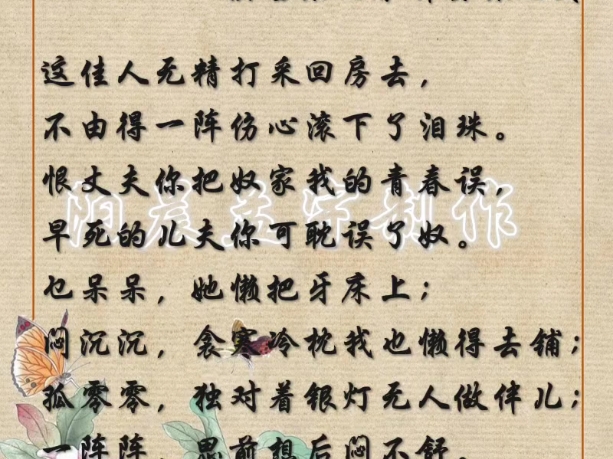 这佳人无精打采回房去，
不由得一阵伤心滚下了泪珠。
恨丈夫你把奴家我的青春误，
早死的儿夫你可耽误了奴。
乜呆呆，她懒把牙床上；
闷沉沉，衾寒冷枕我也懒得去铺；
孤零零，独对着银灯无人做伴儿；
一阵阵，思前想后闷不舒。
制作